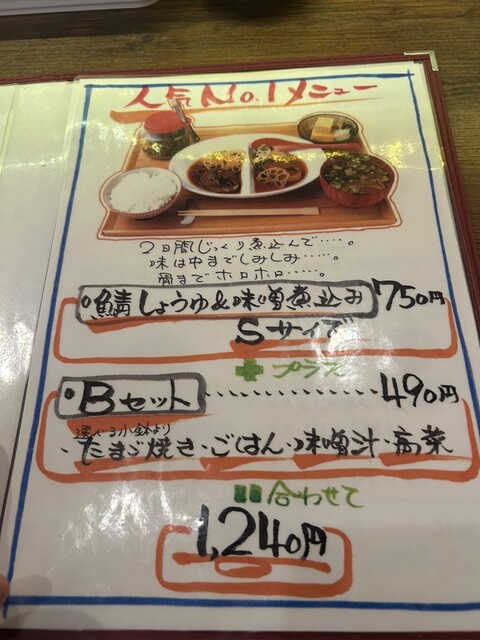 人気No.1メニュー
2日間じっくり煮込んで・・・・。
味は中までしみしみ・・・・。
骨までホロホロ・・・・・。
・鯖しょうゆ&味噌煮込み 750円
Sサイズ
➕プラス
・Bセット・・・・・・・・・・・・・490円
選べる小鉢より
・たまご焼き・ごはん・味噌汁・高菜
合わせて
1,240円